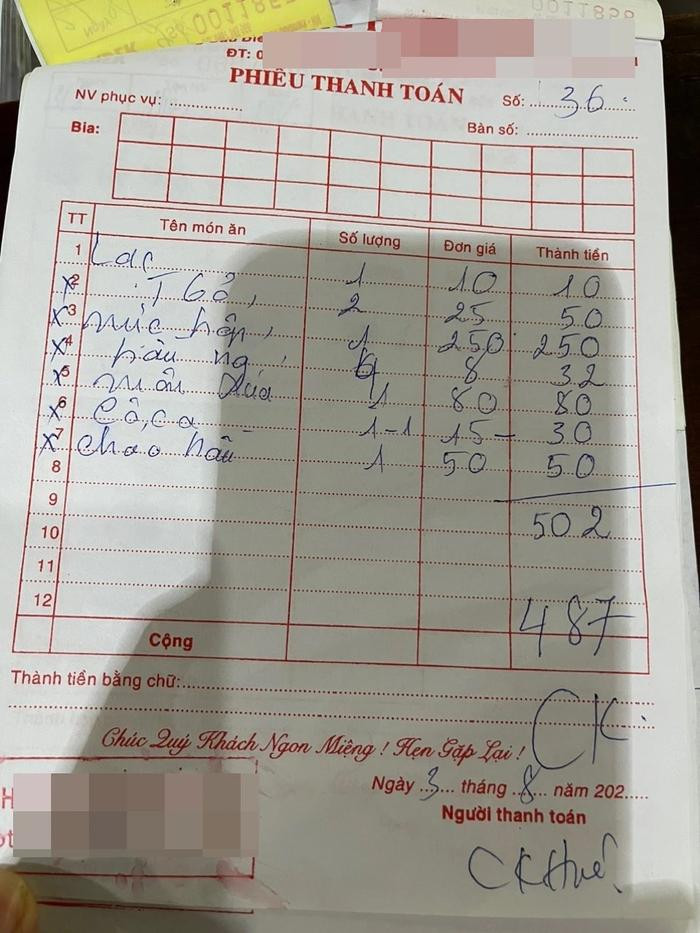 0011858
ĐT: 0
PHIẾU THANH TOÁN
NV phục vụ: .............. Số: 36
Bia: Bàn số: ....................
TT Tên món ăn Số lượng Đơn giá Thành tiền
1 Lạc 1 10 10
x 2 2 25 50
x 3 mực hấp, 1 250 250
x 4 hàu 4 8 32
x 5 1 80 80
x 6 Cô, ca 1-1 15 - 30
x 7 Cháo hàu 1 50 50
8
9
10 502
11
12
487
Cộng
Thành tiền bằng chữ:
CK
Chúc Quý Khách Ngon Miệng ! Hẹn Gặp Lại !
Ngày 3 tháng 8 năm 202.....
Người thanh toán
CK Huế